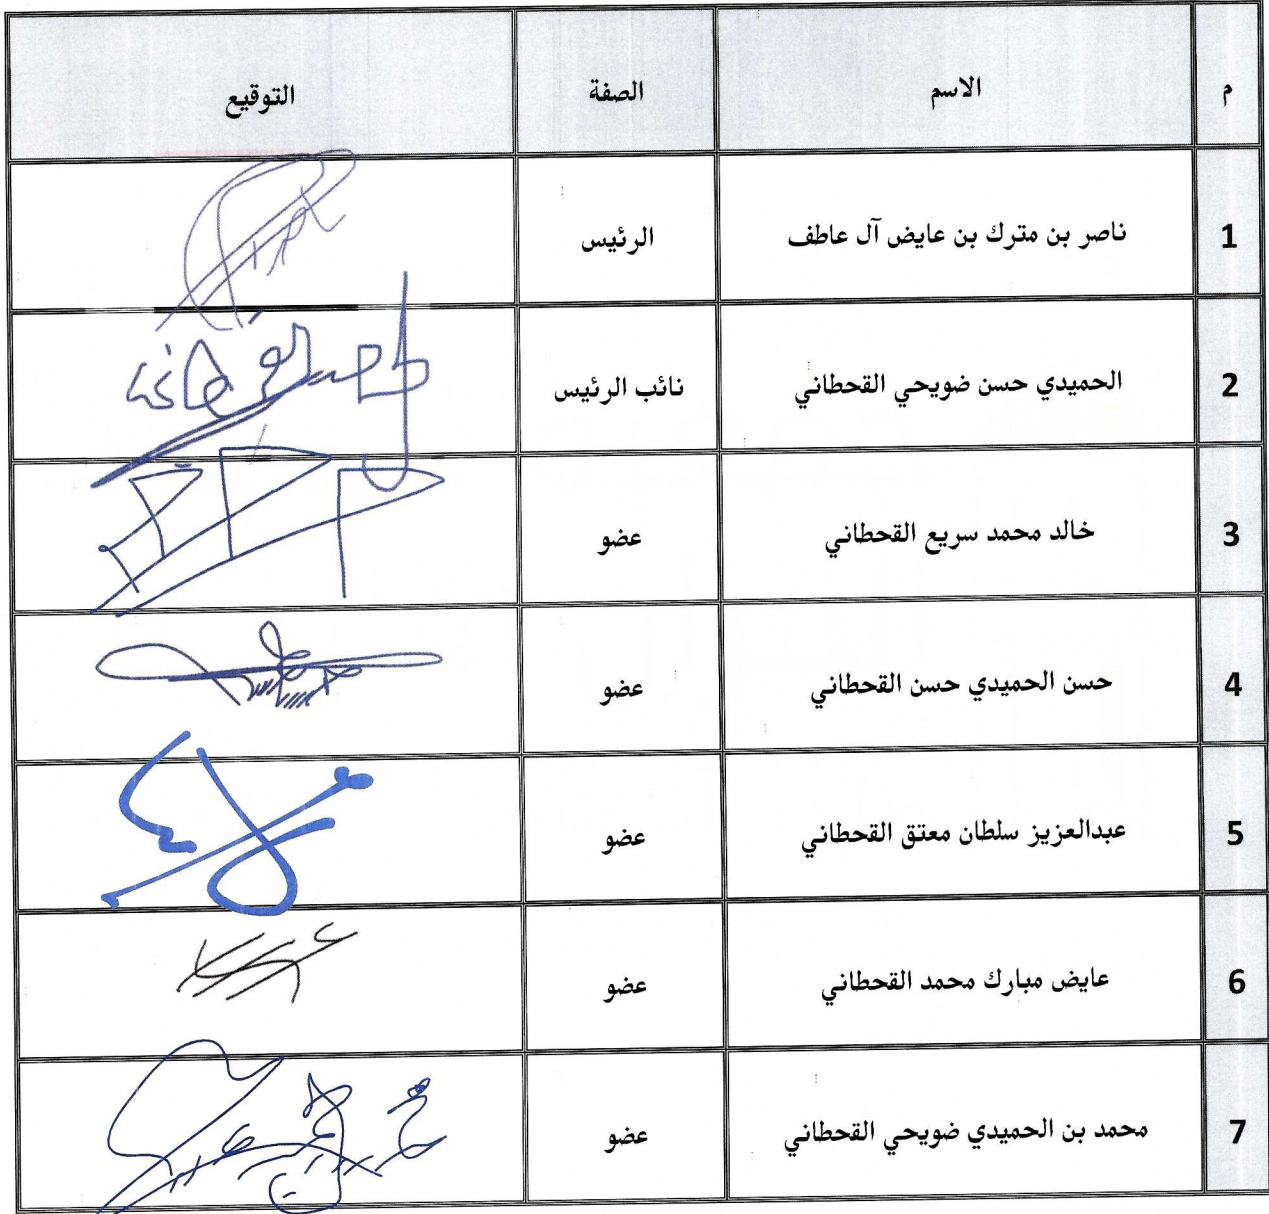 م الاسم الصفة التوقيع
1 ناصر بن مترك بن عايض آل عاطف الرئيس
2 الحميدي حسن ضويحي القحطاني نائب الرئيس
3 خالد محمد سريع القحطاني عضو
4 حسن الحميدي حسن القحطاني عضو
5 عبدالعزيز سلطان معتق القحطاني عضو
6 عايض مبارك محمد القحطاني عضو
7 محمد بن الحميدي ضويحي القحطاني عضو